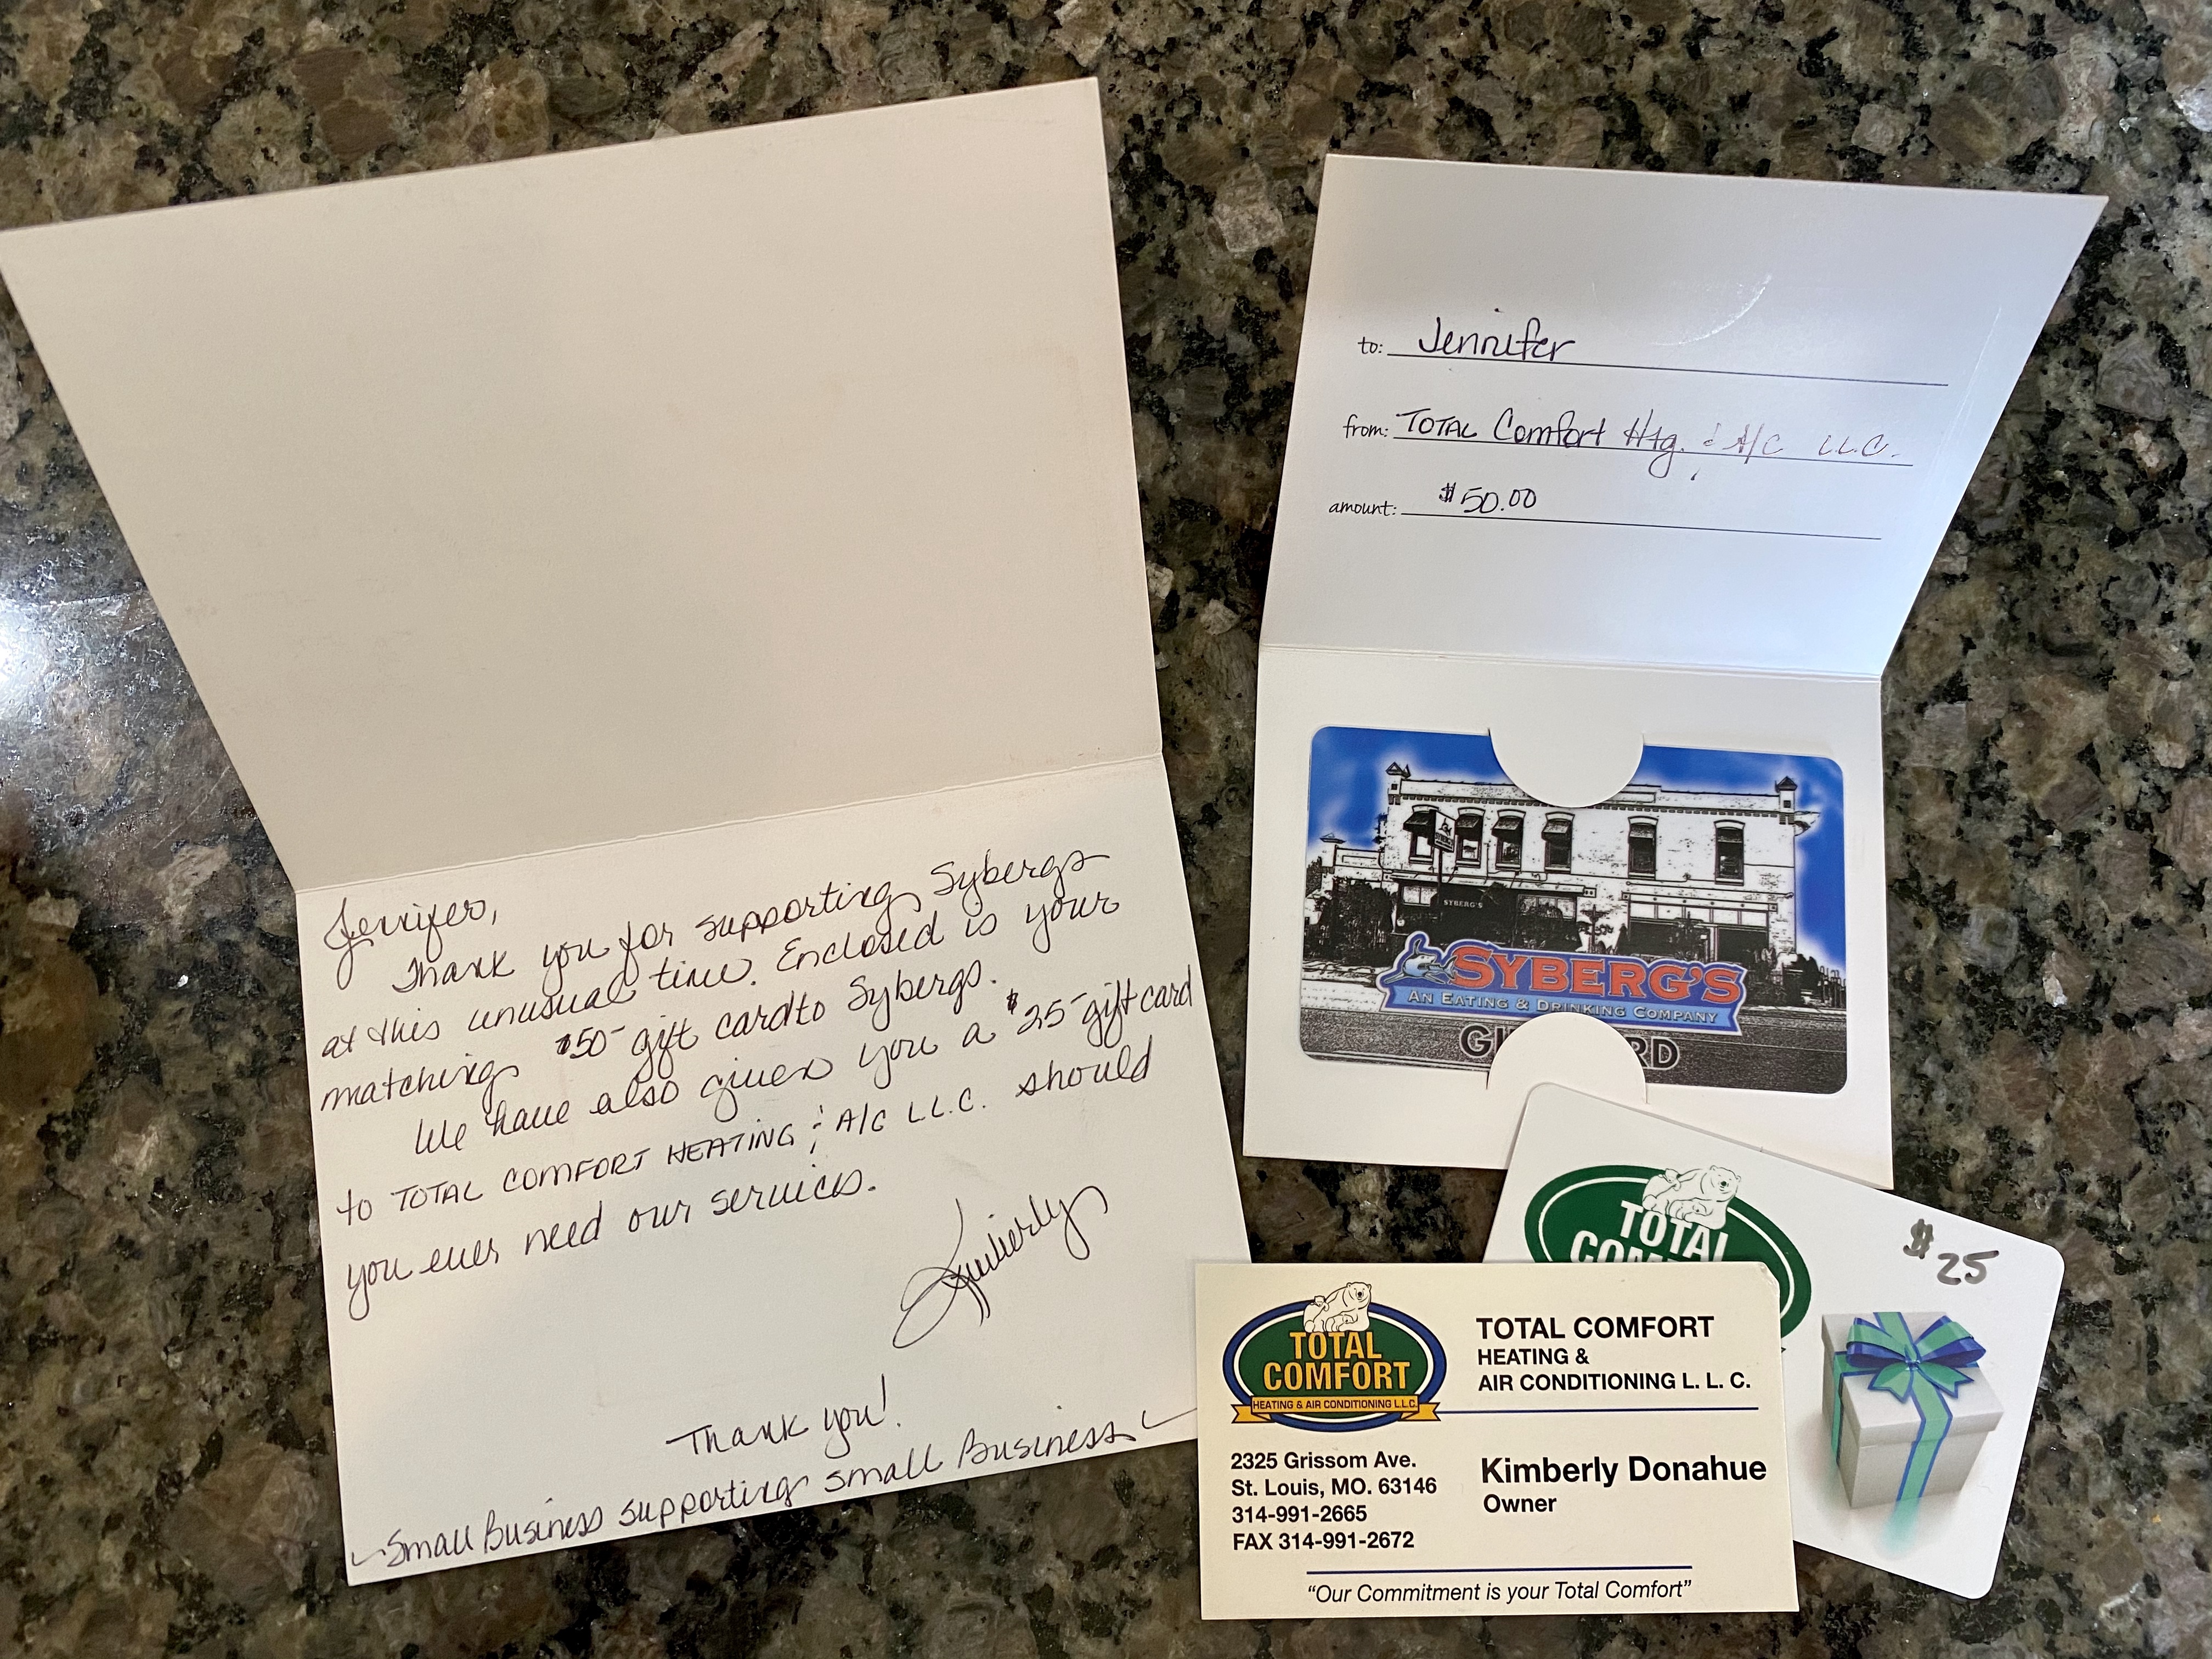 Jennifer,
Thank you for supporting Sybergs
at this unusual time. Enclosed is your
matching $50- gift card to Sybergs.
We have also given you a $25- gift card
to TOTAL COMFORT HEATING & A/C L.L.C. should
you ever need our services.
Kimberly
Thank you!
~Small Business supporting small Business~
to: Jennifer
from: TOTAL Comfort Htg. & A/C LLC.
amount: $50.00
SYBERG'S
SYBERG'S
AN EATING & DRINKING COMPANY
TOTAL
$25
TOTAL
COMFORT
HEATING & AIR CONDITIONING L.L.C.
TOTAL COMFORT
HEATING &
AIR CONDITIONING L. L. C.
2325 Grissom Ave.
St. Louis, MO. 63146
314-991-2665
FAX 314-991-2672
Kimberly Donahue
Owner
"Our Commitment is your Total Comfort"